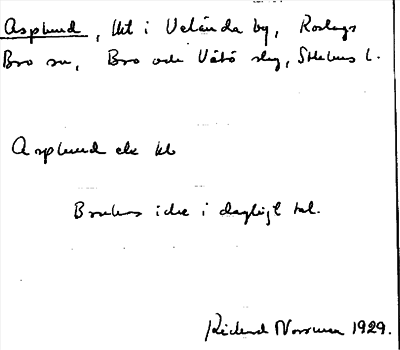 Asplund, lht i Velånda by, Roslags
Bro sn, Bro och Vätö slg, Sthlms l.
Asplund
Brukas icke i dagligt tal.
Rickard Norrman 1929.